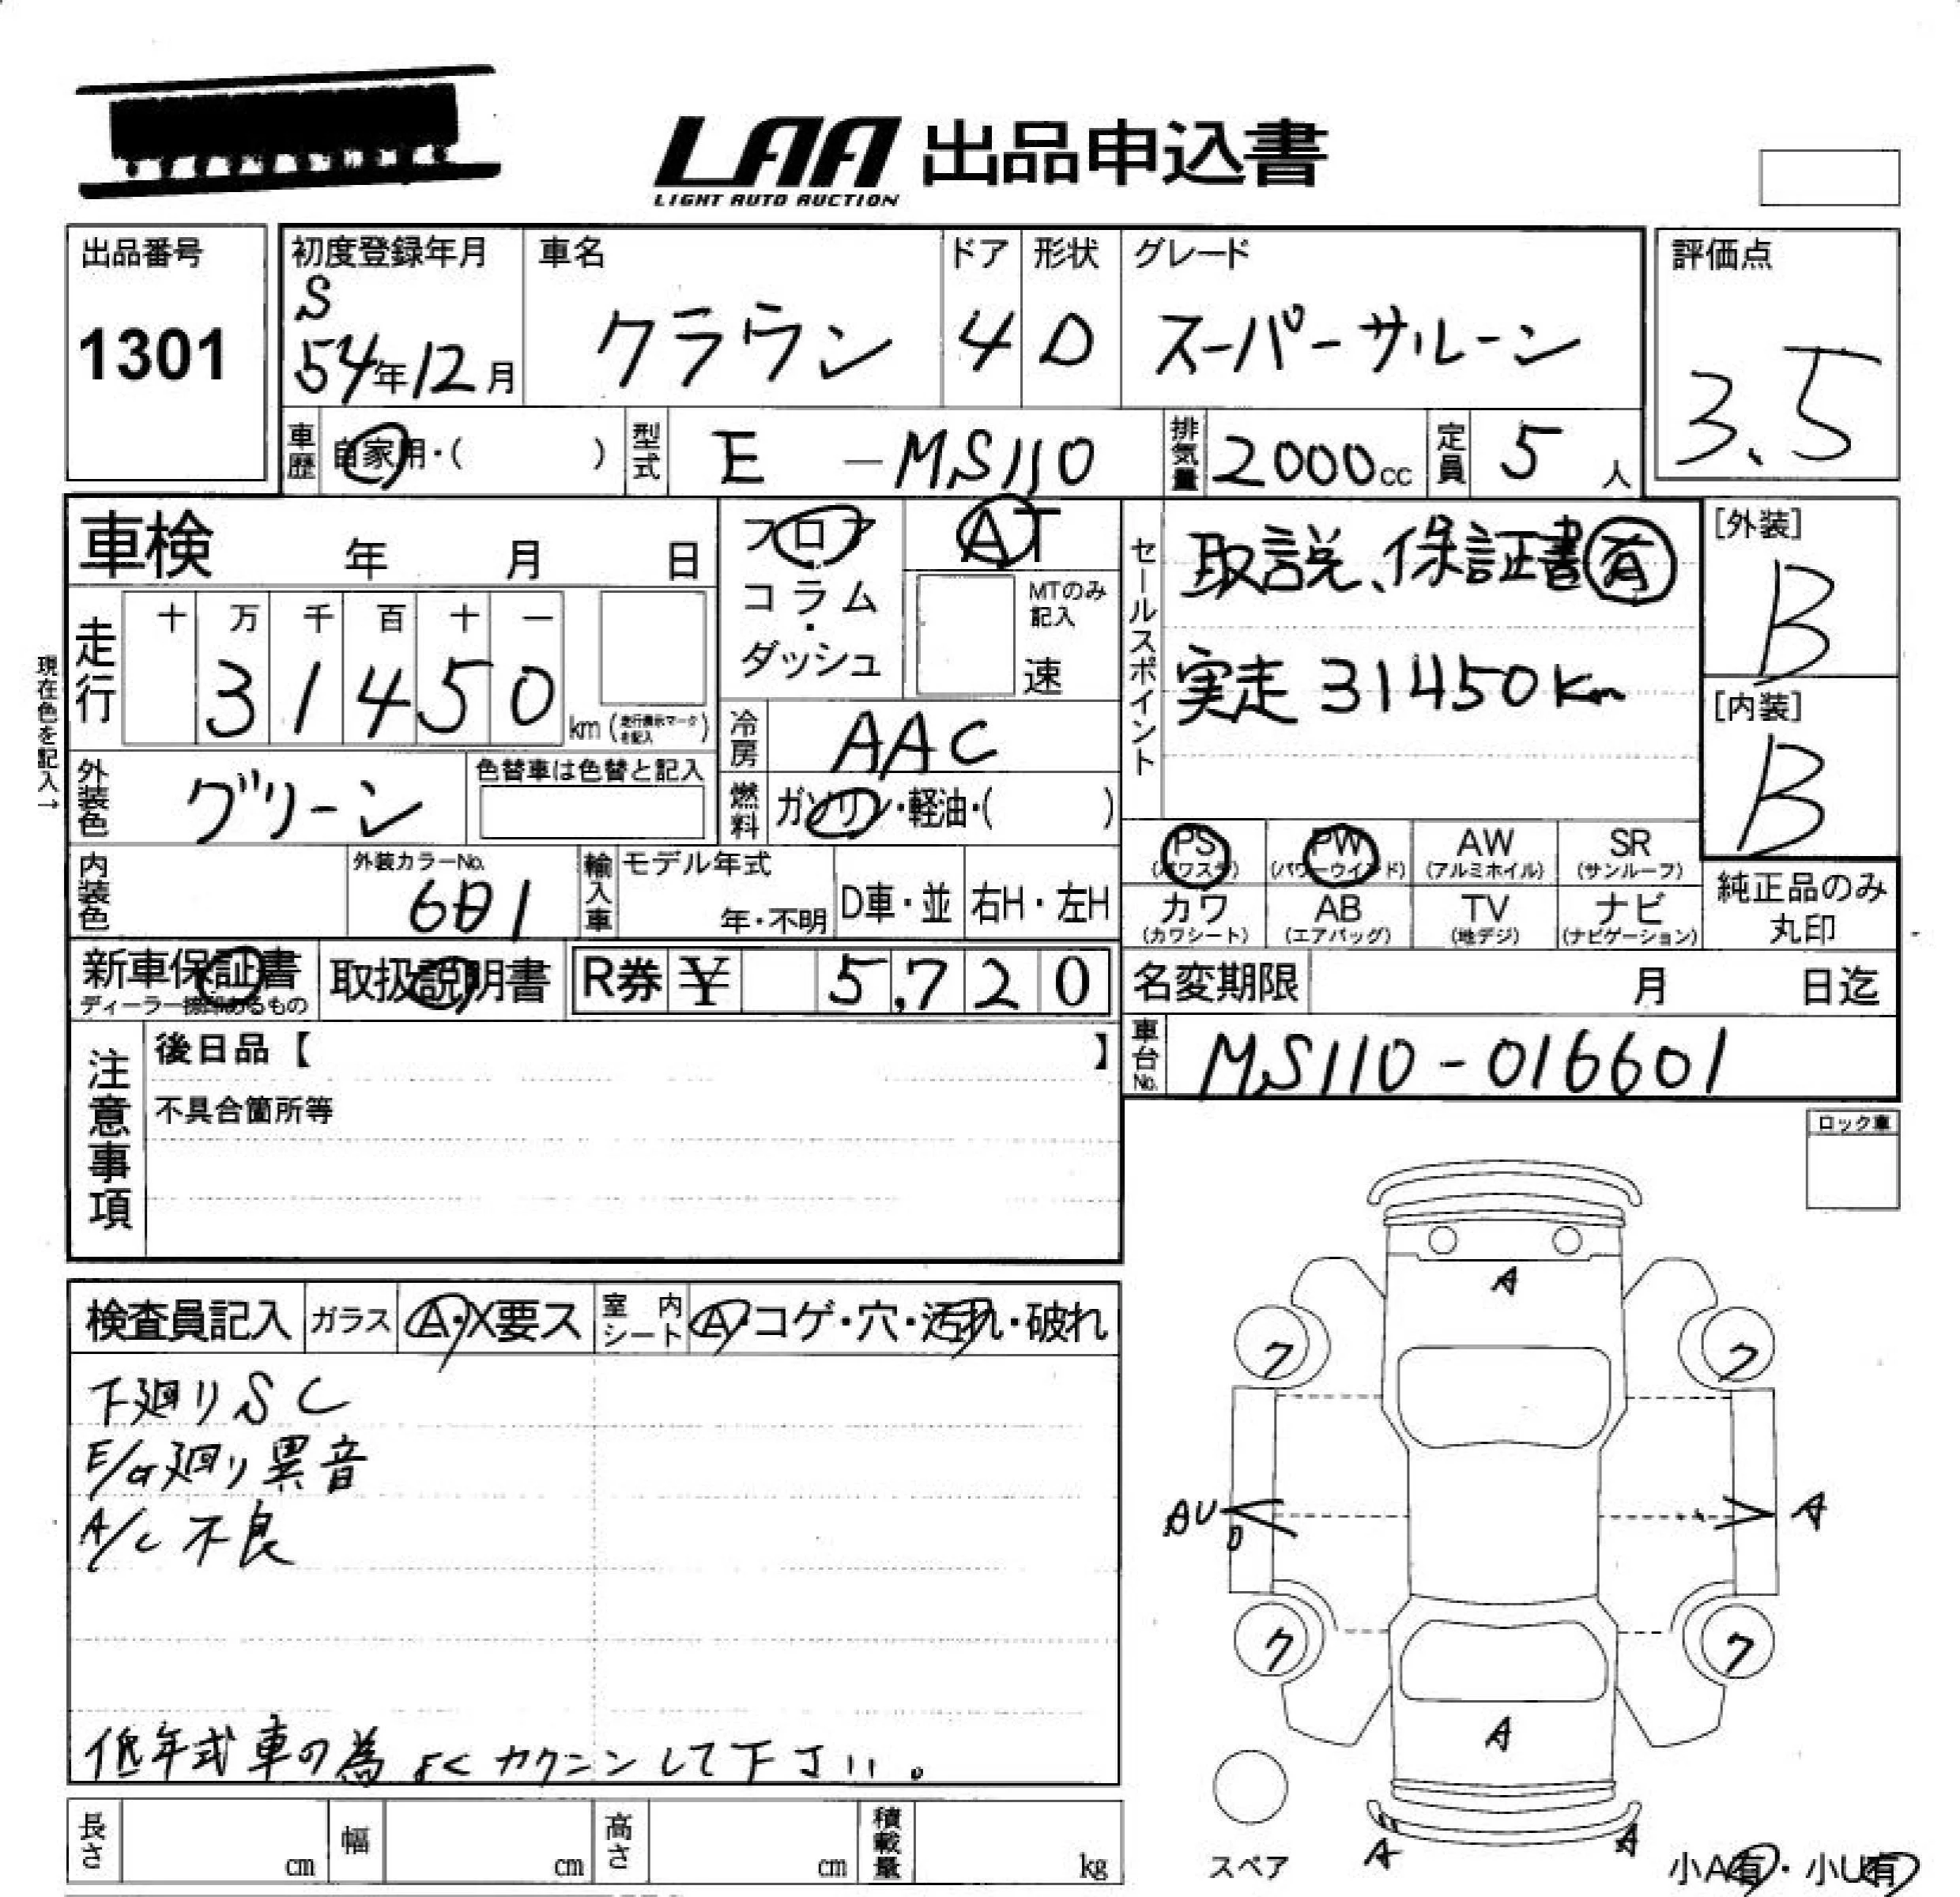 LAA 出品申込書
LIGHT AUTO AUCTION
出品番号
1301
初度登録年月
S
54年12月
車名
クラウン
ドア
4
形状
D
グレード
スーパーサルーン
評価点
3.5
車歴
自家用・( )
型式
E - MS110
排気量
2000cc
定員
5人
車検 年 月 日
フロア
・
コラム
・
ダッシュ
AT
MTのみ記入
速
セールスポイント
取説、保証書有
実走 31450Km
[外装]
B
[内装]
B
現在色を記入→
走行
十 万 千 百 十 一
3 1 4 5 0
km(走行表示マークを記入)
冷房
AAC
燃料
ガソリン・軽油・( )
外装色
グリーン
色替車は色替と記入
内装色
外装カラーNo.
輸入車
モデル年式
年・不明
D車・並
右H・左H
PS
(パワステ)
PW
(パワーウインド)
AW
(アルミホイル)
SR
(サンルーフ)
カワ
(カワシート)
AB
(エアバッグ)
TV
(地デジ)
ナビ
(ナビゲーション)
純正品のみ
丸印
新車保証書
取扱説明書
R券 ¥ 5,720
名変期限 月 日迄
車台No.
MS110-016601
注意事項
後日品【 】
不具合箇所等
ロック車
検査員記入
ガラス
A・X要ス
室内シート
A・コゲ・穴・汚れ・破れ
下廻りSC
E/G廻り異音
A/C不良
低年式車の為よくカクニンして下さい。
A
ク
ク
AU
A
ク
ク
A
A
A
スペア
小A有・小U有
長さ
cm
幅
cm
高さ
cm
積載量
kg